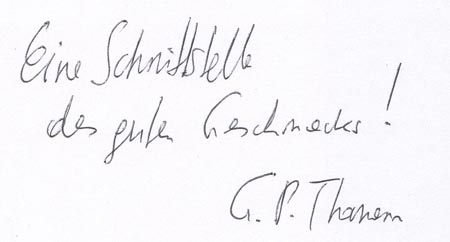 Eine Schnittstelle
des guten Geschmacks!
G. P. Thanem